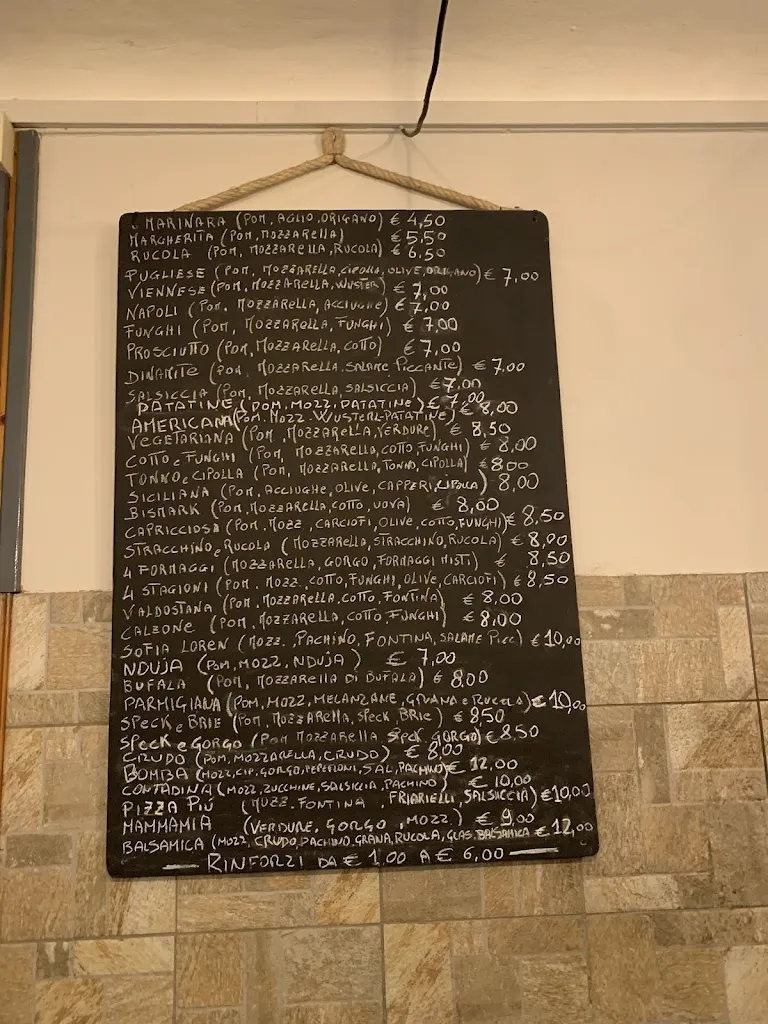 MARINARA (POM, AGLIO, ORIGANO) € 4,50
MARGHERITA (POM, MOZZARELLA) € 5,50
RUCOLA (POM, MOZZARELLA, RUCOLA) € 6,50
PUGLIESE (POM, MOZZARELLA, CIPOLLA, OLIVE, ORIGANO) € 7,00
VIENNESE (POM, MOZZARELLA, WUSTER) € 7,00
NAPOLI (POM, MOZZARELLA, ACCIUGHE) € 7,00
FUNGHI (POM, MOZZARELLA, FUNGHI) € 7,00
PROSCIUTTO (POM, MOZZARELLA, COTTO) € 7,00
DINAMITE (POM, MOZZARELLA, SALAME PICCANTE) € 7,00
SALSICCIA (POM, MOZZARELLA, SALSICCIA) € 7,00
PATATINE (POM, MOZZ, PATATINE) € 7,00
AMERICANA (POM, MOZZ, WUSTERL-PATATINE) € 8,00
VEGETARIANA (POM, MOZZARELLA, VERDURE) € 8,50
COTTO e FUNGHI (POM, MOZZARELLA, COTTO, FUNGHI) € 8,00
TONNO e CIPOLLA (POM, MOZZARELLA, TONNO, CIPOLLA) € 8,00
SICILIANA (POM, ACCIUGHE, OLIVE, CAPPERI, CIPOLLA) 8,00
BISMARK (POM, MOZZARELLA, COTTO, UOVA) € 8,00
CAPRICCIOSA (POM, MOZZ, CARCIOFI, OLIVE, COTTO, FUNGHI) € 8,50
STRACCHINO e RUCOLA (MOZZARELLA, STRACCHINO, RUCOLA) € 8,00
4 FORMAGGI (MOZZARELLA, GORGO, FORMAGGI MISTI) € 8,50
4 STAGIONI (POM, MOZZ, COTTO, FUNGHI, OLIVE, CARCIOFI) € 8,50
VALDOSTANA (POM, MOZZARELLA, COTTO, FONTINA) € 8,00
CALZONE (POM, MOZZARELLA, COTTO, FUNGHI) € 8,00
SOFIA LOREN (MOZZ, PACHINO, FONTINA, SALAME PICC) € 10,00
NDUJA (POM, MOZZ, NDUJA) € 7,00
BUFALA (POM, MOZZARELLA DI BUFALA) € 8,00
PARMIGIANA (POM, MOZZ, MELANZANE, GRANA e RUCOLA) € 10,00
SPECK e BRIE (POM, MOZZARELLA, SPECK, BRIE) € 8,50
SPECK e GORGO (POM MOZZARELLA SPECK GORGO) € 8,50
CRUDO (POM, MOZZARELLA, CRUDO) € 8,00
BOMBA (MOZZ, CIP, GORGO, PEPERONI, SAL, PACHINO) € 12,00
CONTADINA (MOZZ, ZUCCHINE, SALSICCIA, PACHINO) € 10,00
PIZZA PIÚ (MOZZ, FONTINA, FRIARIELLI, SALSICCIA) € 10,00
MAMMAMIA (VERDURE, GORGO, MOZZ) € 9,00
BALSAMICA (MOZZ, CRUDO, PACHINO, GRANA, RUCOLA, GLAS. BALSAMICA € 12,00
RINFORZI DA € 1,00 A € 6,00